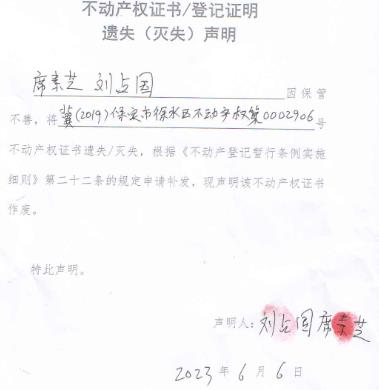 不动产权证书/登记证明
遗失（灭失）声明
席素芝 刘占国 因保管
不善，将冀(2019)保定市徐水区不动产权第0002906号
不动产权证书遗失/灭失，根据《不动产登记暂行条例实施
细则》第二十二条的规定申请补发，现声明该不动产权证书
作废。
特此声明。
声明人：刘占国 席素芝
2023年6月6日